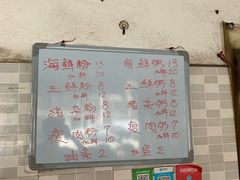 海鲜粉 13
加料 20
三鲜粉 8
加料 12
猪杂粉 8
加料 12
瘦肉粉 7
加料 10
油条 2
海鲜粥 13
加料 20
三鲜粥 8
加料 12
猪杂粥 8
加料 12
瘦肉粥 7
加料 10
加蛋 2